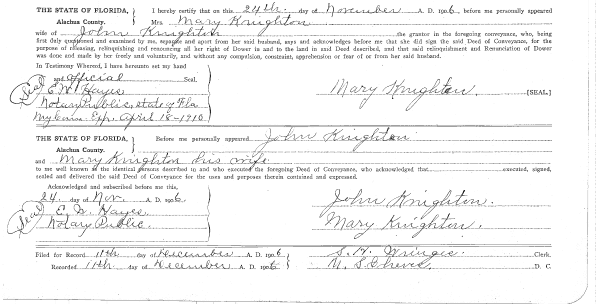 THE STATE OF FLORIDA, I hereby certify that on this 24th. day of November A. D. 1906, before me personally appeared
Alachua County. Mrs Mary Knighton
wife of John Knighton the grantor in the foregoing conveyance, who, being
first duly questioned and examined by me, separate and apart from her said husband, says and acknowledges before me that she did sign the said Deed of Conveyance, for the
purpose of releasing, relinquishing and renouncing all her right of Dower in and to the land in said Deed described, and that said relinquishment and Renunciation of Dower
was done and made by her freely and voluntarily, and without any compulsion, constraint, apprehension or fear of or from her said husband.
In Testimony Whereof, I have hereunto set my hand
and official Seal.
Seal E. W. Hayes Mary Knighton. [SEAL.]
Notary Public, State of Fla
My Com. Exp. April 18-1910.
THE STATE OF FLORIDA, Before me personally appeared John Knighton
Alachua County.
and Mary Knighton his wife
to me well known as the identical persons described in and who executed the foregoing Deed of Conveyance, who acknowledged that executed, signed,
sealed and delivered the said Deed of Conveyance for the uses and purposes therein contained and expressed.
Acknowledged and subscribed before me this,
24. day of Nov. A. D. 1906. John Knighton.
Seal E. W. Hayes Mary Knighton.
Notary Public.
Filed for Record 11th day of December A. D. 1906 S. H. Clerk.
Recorded 11th day of December A. D. 1906 D. C.